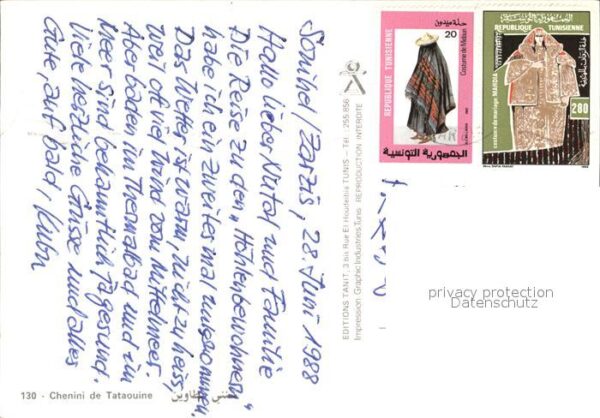 Sanmel / Zarzis, 28. Juni 1988
Hallo lieber Xrutal und Familie
Die Reise zu den "Höhlenbewohnern"
habe ich ein zweites mal unternommen.
Das Wetter ist warm, nicht zu heiss,
weil oft ein Wind vom Mittelmeer.
Aber baden im Thermalbad und im
Meer sind bekanntlich ja gesund.
Viele herzliche Grüsse und alles
Gute auf bald,
130 - Chenini de Tataouine شنني تطاوين
EDITIONS TANIT, 3 bis Rue El Houdeibia TUNIS - Tél.: 255.856
Impression Graphic Industries Tunis REPRODUCTION INTERDITE
حلة ميدون
20
Costume de Midoun
REPUBLIQUE TUNISIENNE
الجمهورية التونسية
REPUBLIQUE TUNISIENNE
costume de mariage MAHDIA
280
privacy protection
Datenschutz